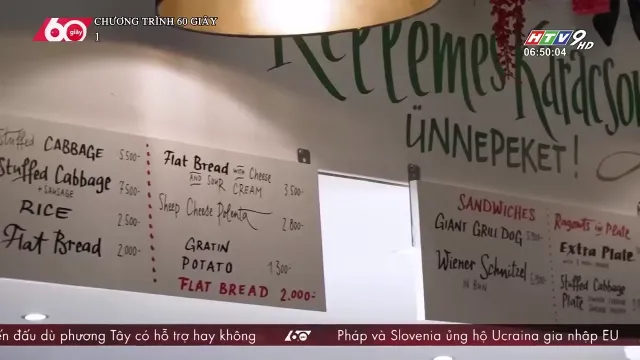 60 giây
CHƯƠNG TRÌNH 60 GIÂY
1
HTV9 HD
06:50:04
Kellemes Karácson
ÜNNEPEKET!
Stuffed CABBAGE 5.500-
Stuffed Cabbage 7.500-
+ SAUSAGE
RICE 2.500-
Flat Bread 2.000-
Flat Bread WITH Cheese
AND SOUR CREAM 3.500-
Sheep Cheese Polenta 2.800-
GRATIN
POTATO 1.300-
FLAT BREAD 2.000-
SANDWICHES
GIANT GRILL DOG
Wiener Schnitzel
IN BUN
Ragouts in Plate
EXTRA PLATE
Stuffed Cabbage
PLATE
ến đấu dù phương Tây có hỗ trợ hay không 60 Pháp và Slovenia ủng hộ Ucraina gia nhập EU